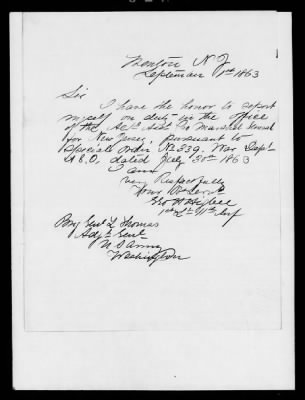 Trenton N.J.
September 1st 1863
Sir
I have the honor to report
myself on duty in the office
of the Act. Asst. Pro Marshal Genl
for New Jersey pursuant to
Special Order No 339. War Dept.
A.G.O. dated July 30th 1863
I am
very Respectfully
Your Obt Servt
Geo
1st Lt 11th Inf
Brig Genl L Thomas
Adjt. Genl.
U S Army
Washington